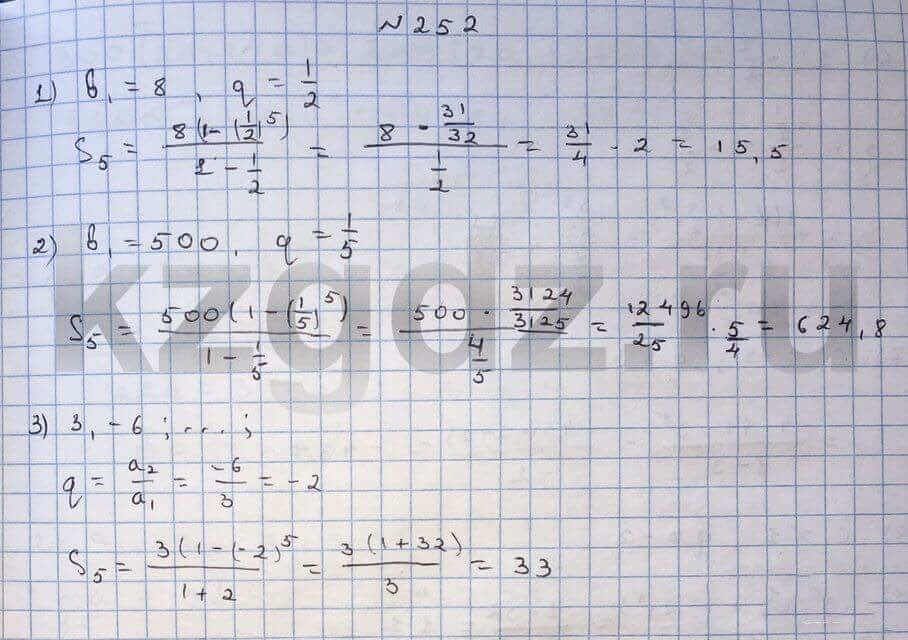 № 252
1) b₁ = 8 , q = 1/2
S₅ = 8(1-(1/2)⁵)/(1-1/2) = (8 · 31/32)/(1/2) = 31/4 · 2 = 15,5
2) b₁ = 500, q = 1/5
S₅ = 500(1-(1/5)⁵)/(1-1/5) = (500 · 3124/3125)/(4/5) = 12496/25 · 5/4 = 624,8
kzgdz.ru
3) 3, -6 ; ... ;
q = a₂/a₁ = -6/3 = -2
S₅ = 3(1-(-2)⁵/(1+2) = 3(1+32)/3 = 33